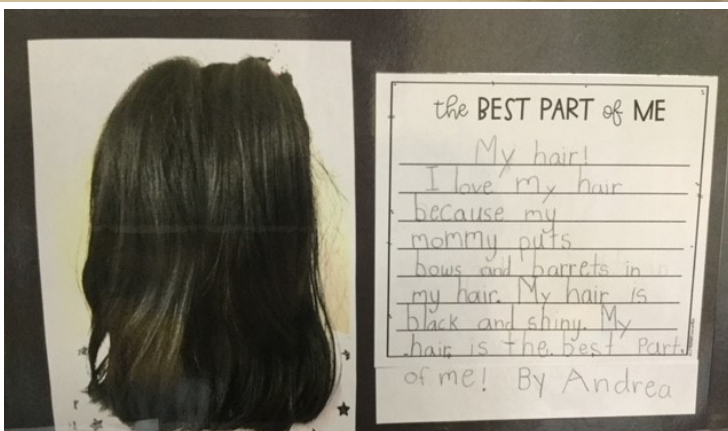 the BEST PART of ME
My hair!
I love my hair
because my
mommy puts
bows and barrets in
my hair. My hair is
black and shiny. My
hair is the best part
of me! By Andrea